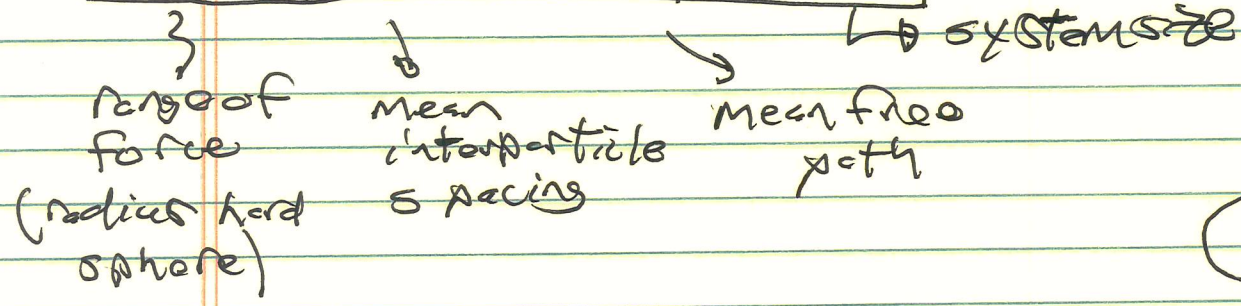 system size
range of
force
(radius hard
sphere)
mean
interparticle
spacing
mean free
path